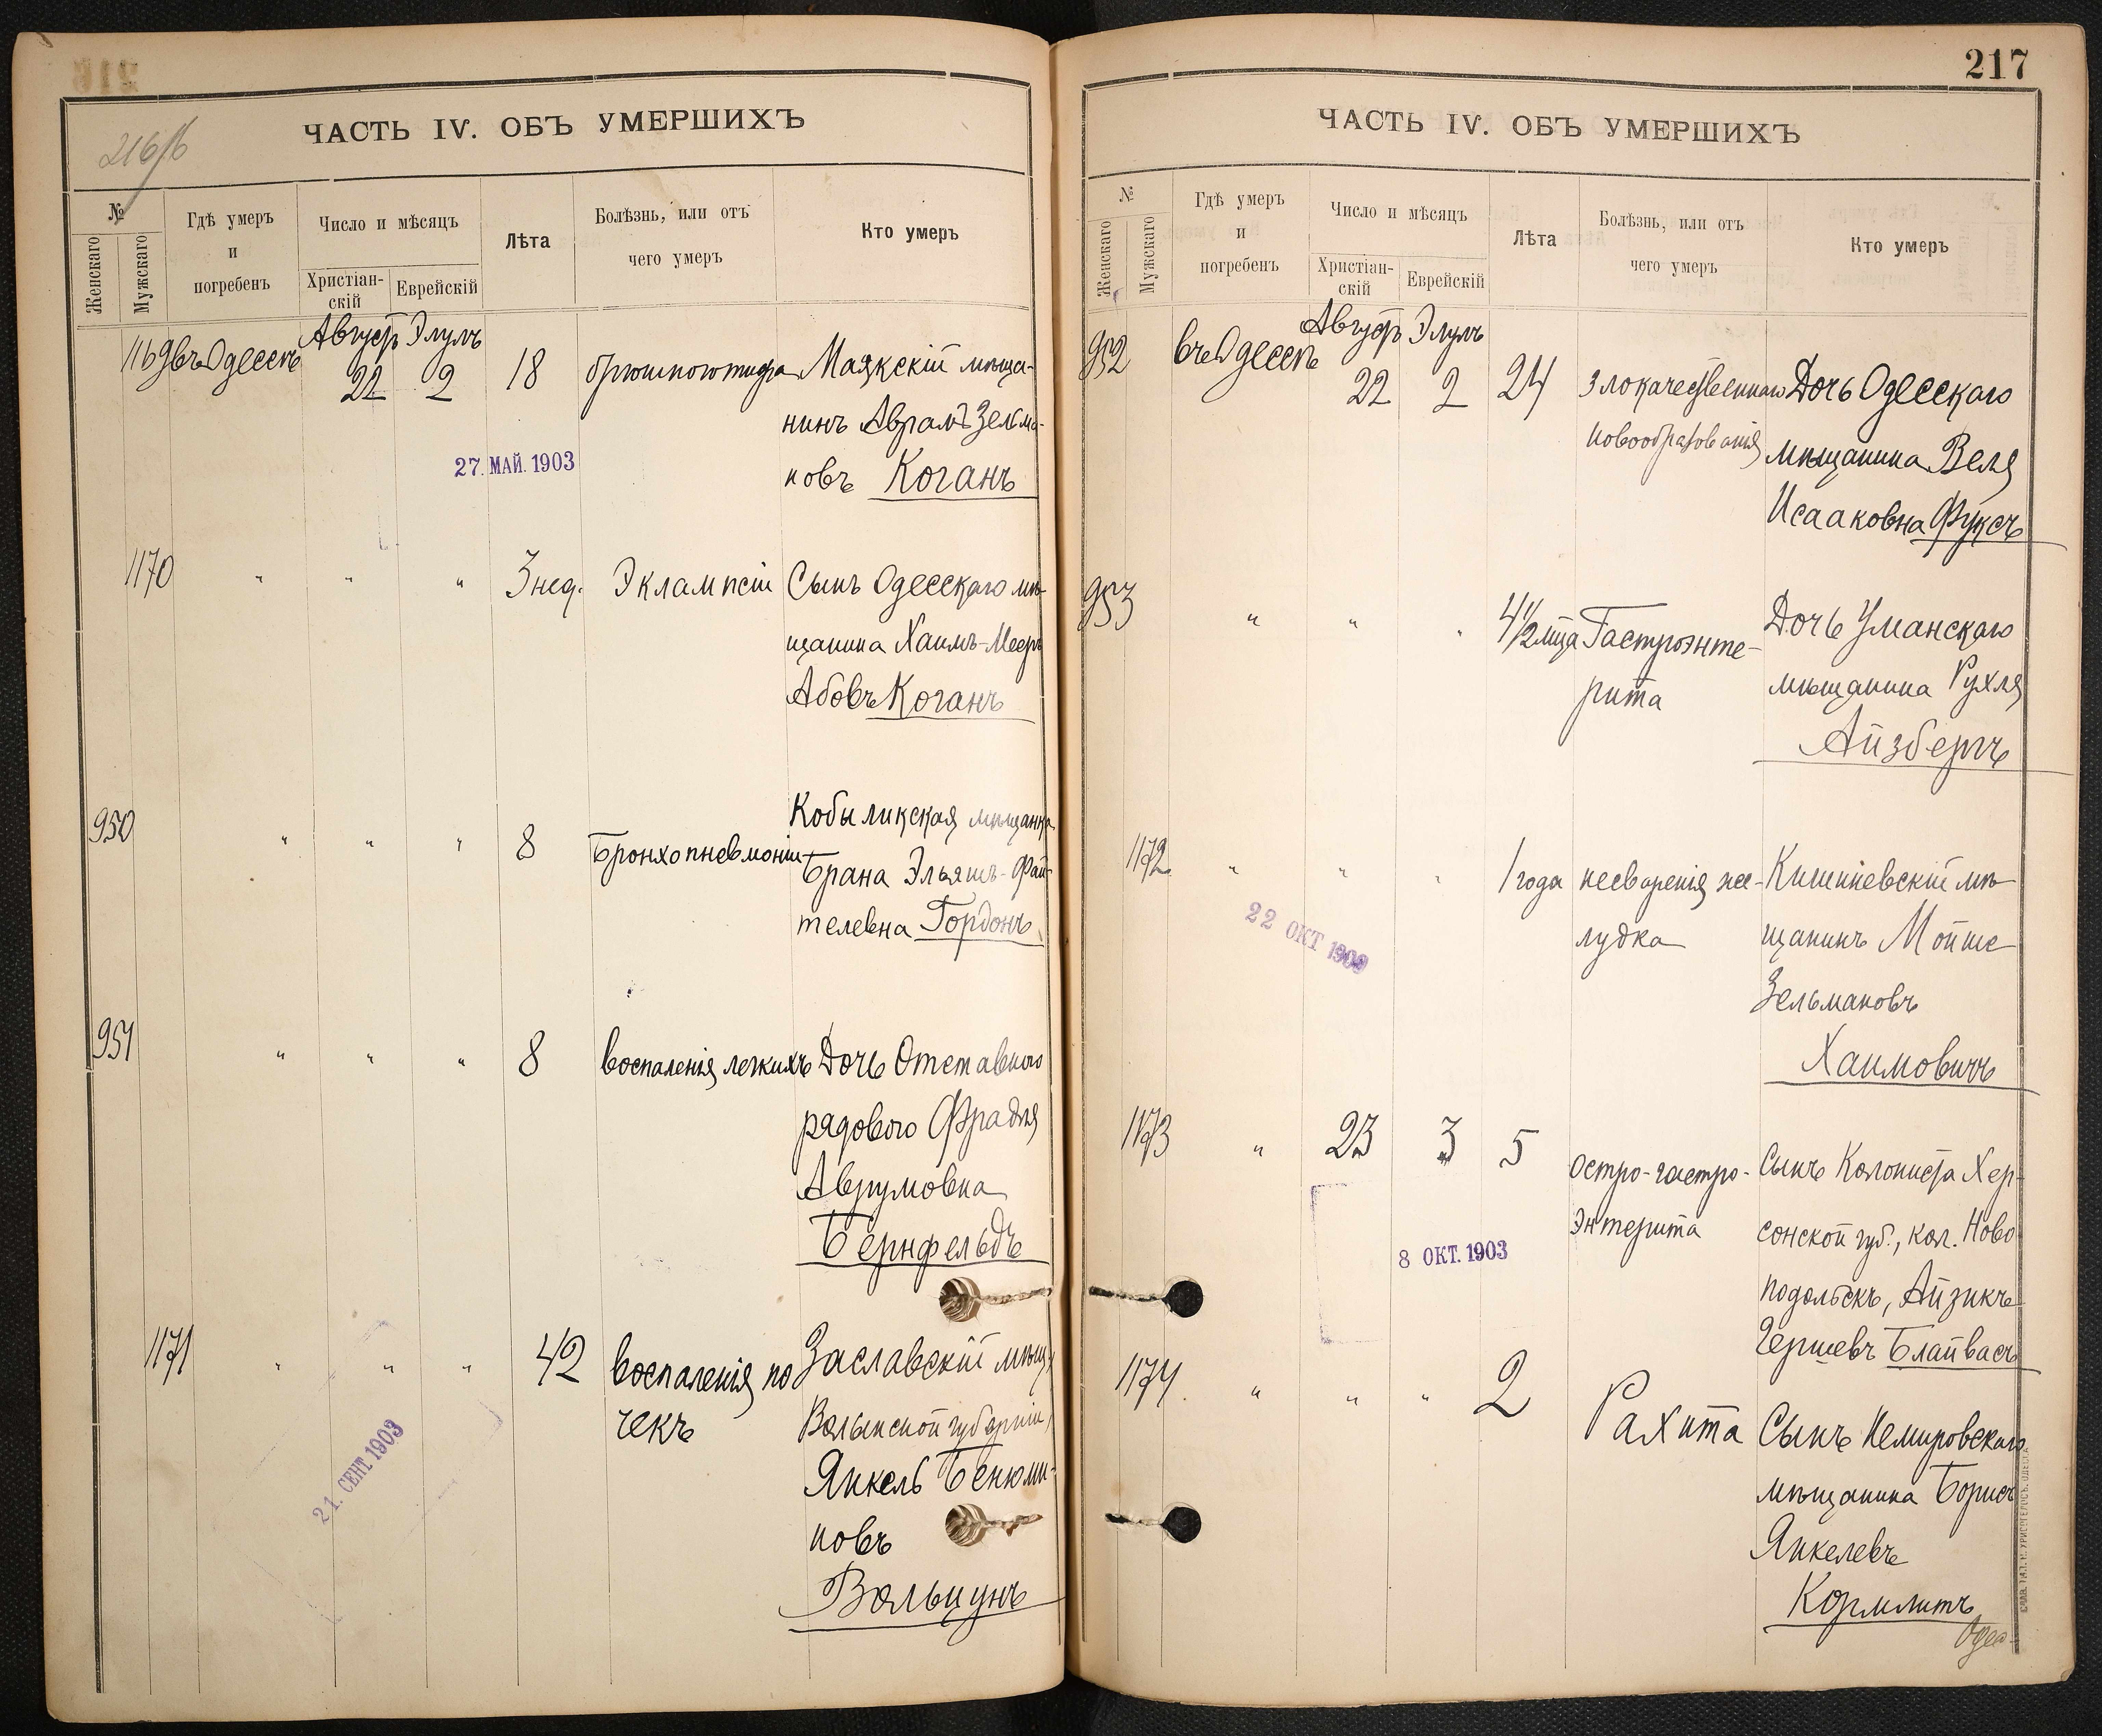 216/б
ЧАСТЬ IV. ОБЪ УМЕРШИХЪ
№
Женскаго
Мужскаго
Гдѣ умеръ
и
погребенъ
Число и мѣсяцъ
Христіан-
скій
Еврейскій
Лѣта
Болѣзнь, или отъ
чего умеръ
Кто умеръ
1169 въ Одессѣ Августъ 22 Элулъ 2 18 брюшного тифа Маякскій мѣща-
нинъ Аврамъ Зельма-
новъ Коганъ
27. МАЙ. 1903
1170 " " " 3 нед. Эклампсіи Сынъ Одесскаго мѣ-
щанина Хаимъ-Мееръ
Абовъ Коганъ
950 " " " 8 Бронхопневмоніи Кобыликская мѣщанка
Брана Эльяшъ-Фай-
телевна Гордонъ
951 " " " 8 воспаленія легкихъ Дочь Отставного
рядового Фрадля
Аврумовна
Бернфельдъ
1171 " " " 42 воспаленія по Заславскій мѣщ.
чекъ Волынской губерніи,
Янкель Бенюми-
новъ
Вольцунъ
21. СЕНТ. 1903
217
ЧАСТЬ IV. ОБЪ УМЕРШИХЪ
№
Женскаго
Мужскаго
Гдѣ умеръ
и
погребенъ
Число и мѣсяцъ
Христіан-
скій
Еврейскій
Лѣта
Болѣзнь, или отъ
чего умеръ
Кто умеръ
952 въ Одессѣ Августъ 22 Элулъ 2 24 злокачественнаго Дочь Одесскаго
новообразованія мѣщанина Веля
Исааковна Фуксъ
953 " " " 4 1/2 мца Гастроэнте- Дочь Уманскаго
рита мѣщанина Рухля
Айзбергъ
1172 " " " 1 года несваренія же- Кишиневскій мѣ-
лудка щанинъ Мойше
Зельмановъ
Хаимовичъ
22 ОКТ 1909
1173 " 23 3 5 остро-гастро- Сынъ Колониста Хер-
энтерита сонской губ., кол. Ново
подольскъ, Айзикъ
Гершевъ Блайвасъ
8 ОКТ. 1903
1174 " " " 2 Рахита Сынъ Немировскаго
мѣщанина Борисъ
Янкелевъ
Кормлитъ